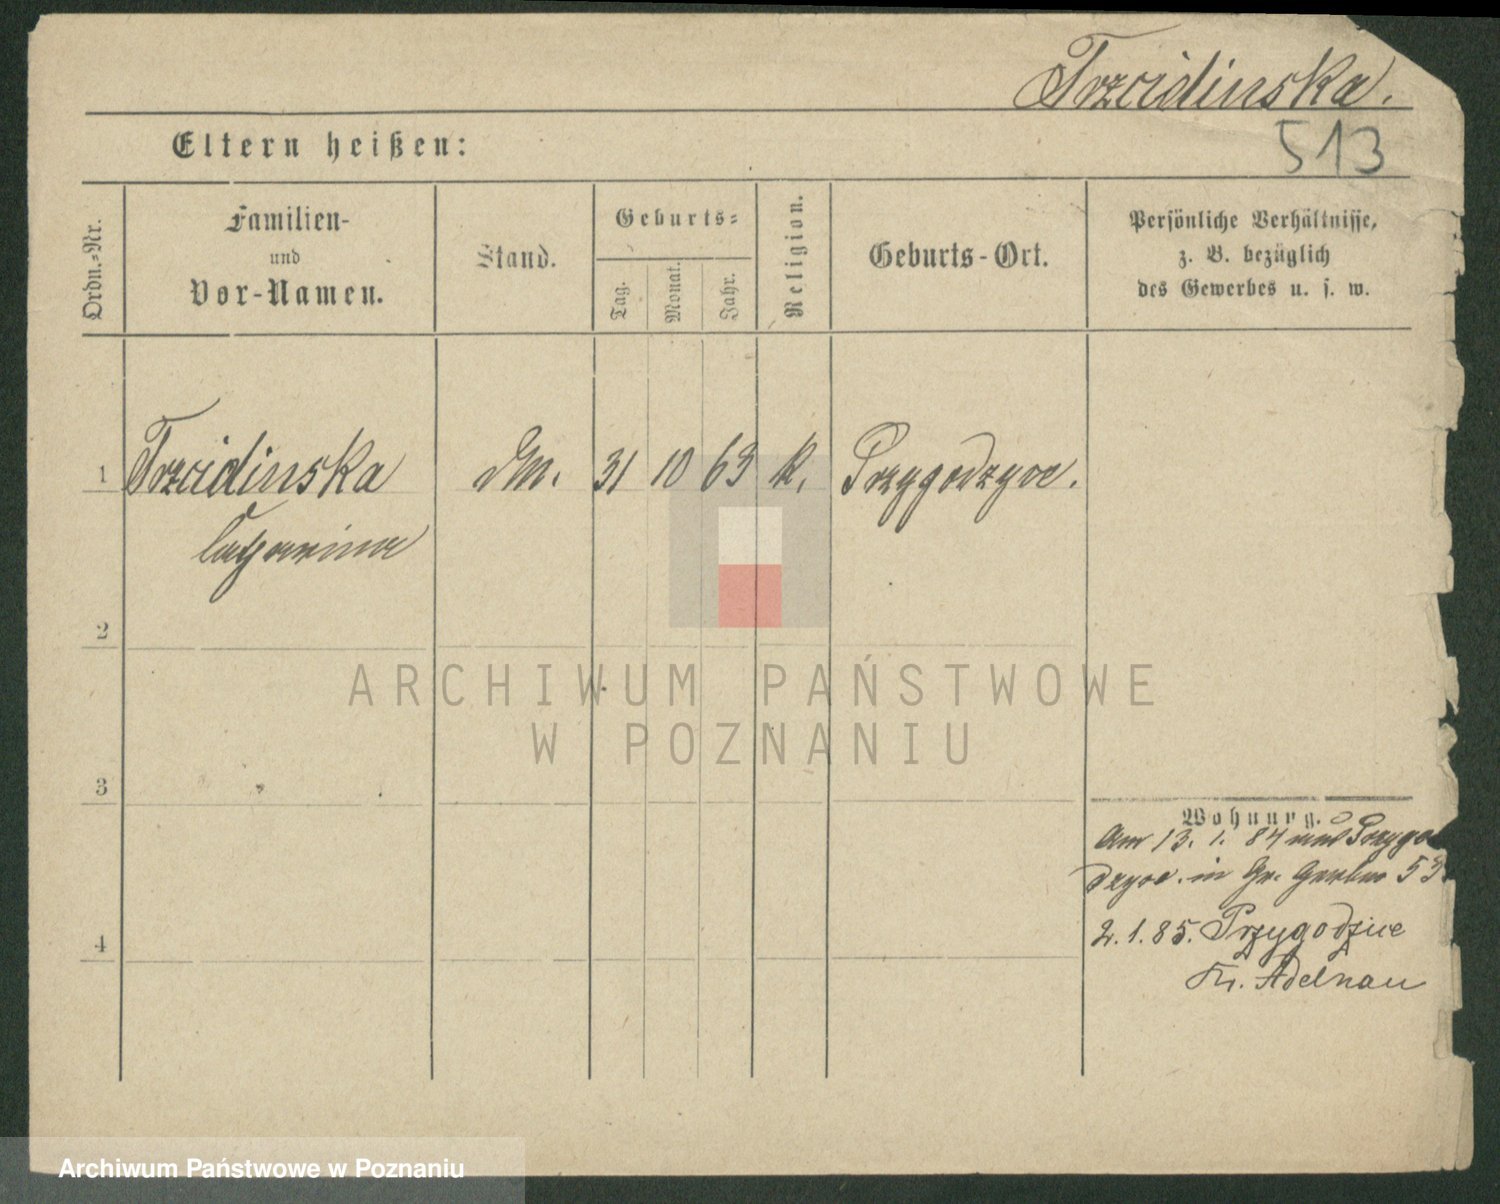 Trzcidinska.
513
Eltern heißen:
Ordn.-Nr.
Familien-
und
Vor-Namen.
Stand.
Geburts-
Tag.
Monat.
Jahr.
Religion.
Geburts-Ort.
Persönliche Verhältnisse,
z. B. bezüglich
des Gewerbes u. s. w.
1 Trzcidinska Dm. 31 10 63 k. Przygodzyce.
Catharina
2
3
4
Wohnung.
Am 13. 1. 84 aus Przygo
dzyce. in Gr. Gerber 53
2.1.85. Przygodzice
Kr. Adelnau
ARCHIWUM PAŃSTWOWE
W POZNANIU
Archiwum Państwowe w Poznaniu